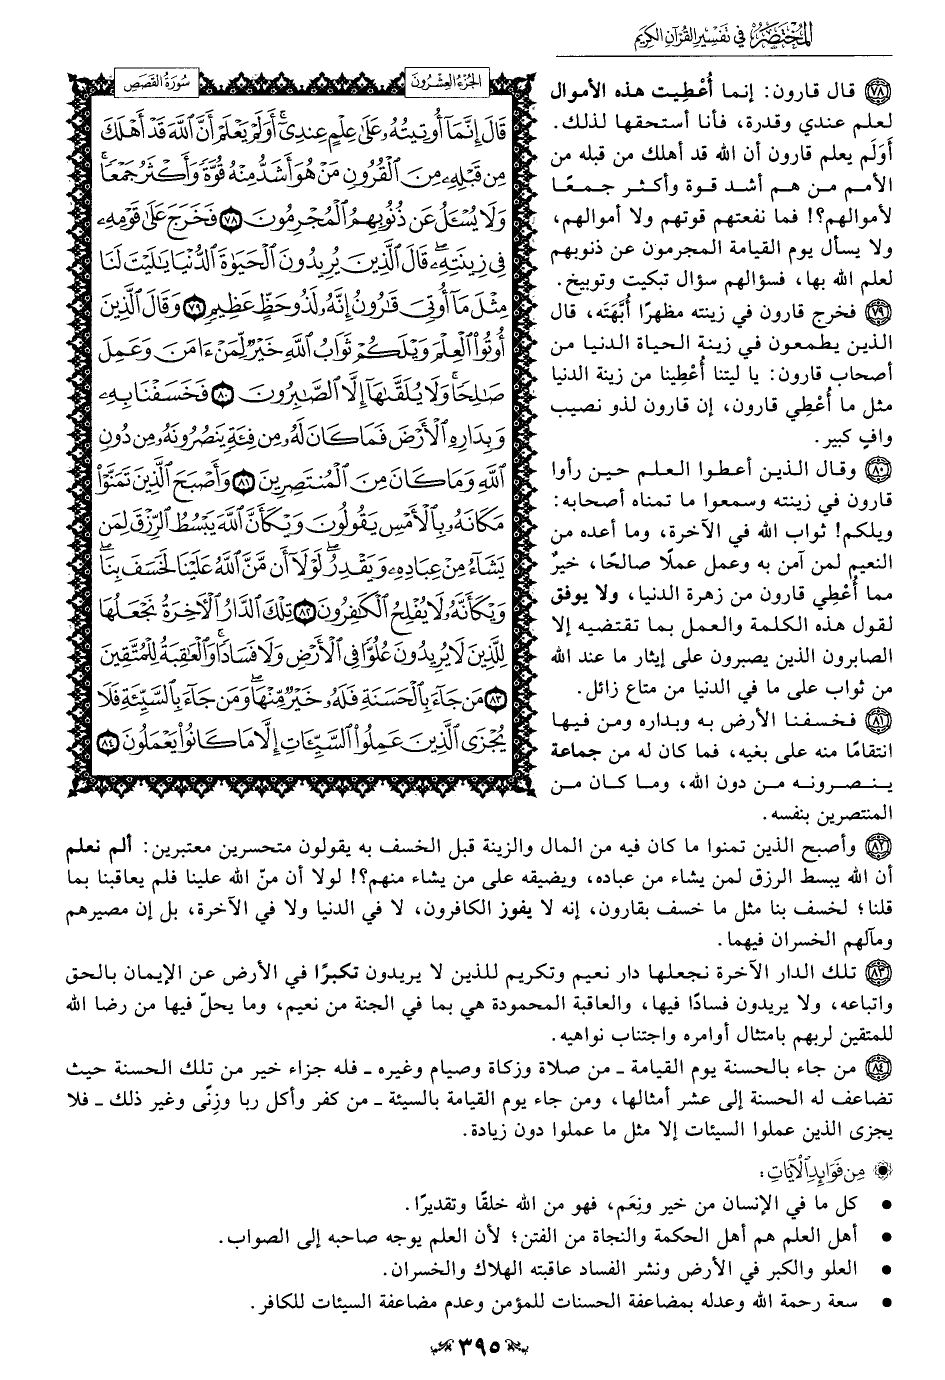 المختصر في تفسير القرآن الكريم
الجزء العشرون
سورة القصص
قَالَ إِنَّمَآ أُوتِيتُهُۥ عَلَىٰ عِلْمٍ عِندِىٓۚ أَوَلَمْ يَعْلَمْ أَنَّ ٱللَّهَ قَدْ أَهْلَكَ
مِن قَبْلِهِۦ مِنَ ٱلْقُرُونِ مَنْ هُوَ أَشَدُّ مِنْهُ قُوَّةً وَأَكْثَرُ جَمْعًاۚ
وَلَا يُسْـَٔلُ عَن ذُنُوبِهِمُ ٱلْمُجْرِمُونَ ٧٨ فَخَرَجَ عَلَىٰ قَوْمِهِۦ
فِى زِينَتِهِۦۖ قَالَ ٱلَّذِينَ يُرِيدُونَ ٱلْحَيَوٰةَ ٱلدُّنْيَا يَـٰلَيْتَ لَنَا
مِثْلَ مَآ أُوتِىَ قَـٰرُونُ إِنَّهُۥ لَذُو حَظٍّ عَظِيمٍ ٧٩ وَقَالَ ٱلَّذِينَ
أُوتُوا۟ ٱلْعِلْمَ وَيْلَكُمْ ثَوَابُ ٱللَّهِ خَيْرٌ لِّمَنْ ءَامَنَ وَعَمِلَ
صَـٰلِحًاۚ وَلَا يُلَقَّىٰهَآ إِلَّا ٱلصَّـٰبِرُونَ ٨٠ فَخَسَفْنَا بِهِۦ
وَبِدَارِهِ ٱلْأَرْضَ فَمَا كَانَ لَهُۥ مِن فِئَةٍ يَنصُرُونَهُۥ مِن دُونِ
ٱللَّهِ وَمَا كَانَ مِنَ ٱلْمُنتَصِرِينَ ٨١ وَأَصْبَحَ ٱلَّذِينَ تَمَنَّوْا۟
مَكَانَهُۥ بِٱلْأَمْسِ يَقُولُونَ وَيْكَأَنَّ ٱللَّهَ يَبْسُطُ ٱلرِّزْقَ لِمَن
يَشَآءُ مِنْ عِبَادِهِۦ وَيَقْدِرُۖ لَوْلَآ أَن مَّنَّ ٱللَّهُ عَلَيْنَا لَخَسَفَ بِنَاۖ
وَيْكَأَنَّهُۥ لَا يُفْلِحُ ٱلْكَـٰفِرُونَ ٨٢ تِلْكَ ٱلدَّارُ ٱلْـَٔاخِرَةُ نَجْعَلُهَا
لِلَّذِينَ لَا يُرِيدُونَ عُلُوًّا فِى ٱلْأَرْضِ وَلَا فَسَادًاۚ وَٱلْعَـٰقِبَةُ لِلْمُتَّقِينَ
٨٣ مَن جَآءَ بِٱلْحَسَنَةِ فَلَهُۥ خَيْرٌ مِّنْهَاۖ وَمَن جَآءَ بِٱلسَّيِّئَةِ فَلَا
يُجْزَى ٱلَّذِينَ عَمِلُوا۟ ٱلسَّيِّـَٔاتِ إِلَّا مَا كَانُوا۟ يَعْمَلُونَ ٨٤
٧٨ قال قارون: إنما أُعْطِيت هذه الأموال
لعلم عندي وقدرة، فأنا أستحقها لذلك.
أوَلَم يعلم قارون أن الله قد أهلك من قبله من
الأمم من هم أشد قوة وأكثر جمعًا
لأموالهم؟! فما نفعتهم قوتهم ولا أموالهم،
ولا يسأل يوم القيامة المجرمون عن ذنوبهم
لعلم الله بها، فسؤالهم سؤال تبكيت وتوبيخ.
٧٩ فخرج قارون في زينته مظهرًا أُبَّهَته، قال
الذين يطمعون في زينة الحياة الدنيا من
أصحاب قارون: يا ليتنا أُعْطِينا من زينة الدنيا
مثل ما أُعْطِي قارون، إن قارون لذو نصيب
وافٍ كبير.
٨٠ وقال الذين أعطوا العلم حين رأوا
قارون في زينته وسمعوا ما تمناه أصحابه:
ويلكم! ثواب الله في الآخرة، وما أعده من
النعيم لمن آمن به وعمل عملًا صالحًا، خيرٌ
مما أُعْطِي قارون من زهرة الدنيا، ولا يوفق
لقول هذه الكلمة والعمل بما تقتضيه إلا
الصابرون الذين يصبرون على إيثار ما عند الله
من ثواب على ما في الدنيا من متاع زائل.
٨١ فخسفنا الأرض به وبداره ومن فيها
انتقامًا منه على بغيه، فما كان له من جماعة
ينصرونه من دون الله، وما كان من
المنتصرين بنفسه.
٨٢ وأصبح الذين تمنوا ما كان فيه من المال والزينة قبل الخسف به يقولون متحسرين معتبرين: ألم نعلم
أن الله يبسط الرزق لمن يشاء من عباده، ويضيقه على من يشاء منهم؟! لولا أن منّ الله علينا فلم يعاقبنا بما
قلنا؛ لخسف بنا مثل ما خسف بقارون، إنه لا يفوز الكافرون، لا في الدنيا ولا في الآخرة، بل إن مصيرهم
ومآلهم الخسران فيهما.
٨٣ تلك الدار الآخرة نجعلها دار نعيم وتكريم للذين لا يريدون تكبرًا في الأرض عن الإيمان بالحق
واتباعه، ولا يريدون فسادًا فيها، والعاقبة المحمودة هي بما في الجنة من نعيم، وما يحلّ فيها من رضا الله
للمتقين لربهم بامتثال أوامره واجتناب نواهيه.
٨٤ من جاء بالحسنة يوم القيامة ـ من صلاة وزكاة وصيام وغيره ـ فله جزاء خير من تلك الحسنة حيث
تضاعف له الحسنة إلى عشر أمثالها، ومن جاء يوم القيامة بالسيئة ـ من كفر وأكل ربا وزِنًى وغير ذلك ـ فلا
يجزى الذين عملوا السيئات إلا مثل ما عملوا دون زيادة.
من فوائد الآيات:
• كل ما في الإنسان من خير ونِعَم، فهو من الله خلقًا وتقديرًا.
• أهل العلم هم أهل الحكمة والنجاة من الفتن؛ لأن العلم يوجه صاحبه إلى الصواب.
• العلو والكبر في الأرض ونشر الفساد عاقبته الهلاك والخسران.
• سعة رحمة الله وعدله بمضاعفة الحسنات للمؤمن وعدم مضاعفة السيئات للكافر.
٣٩٥